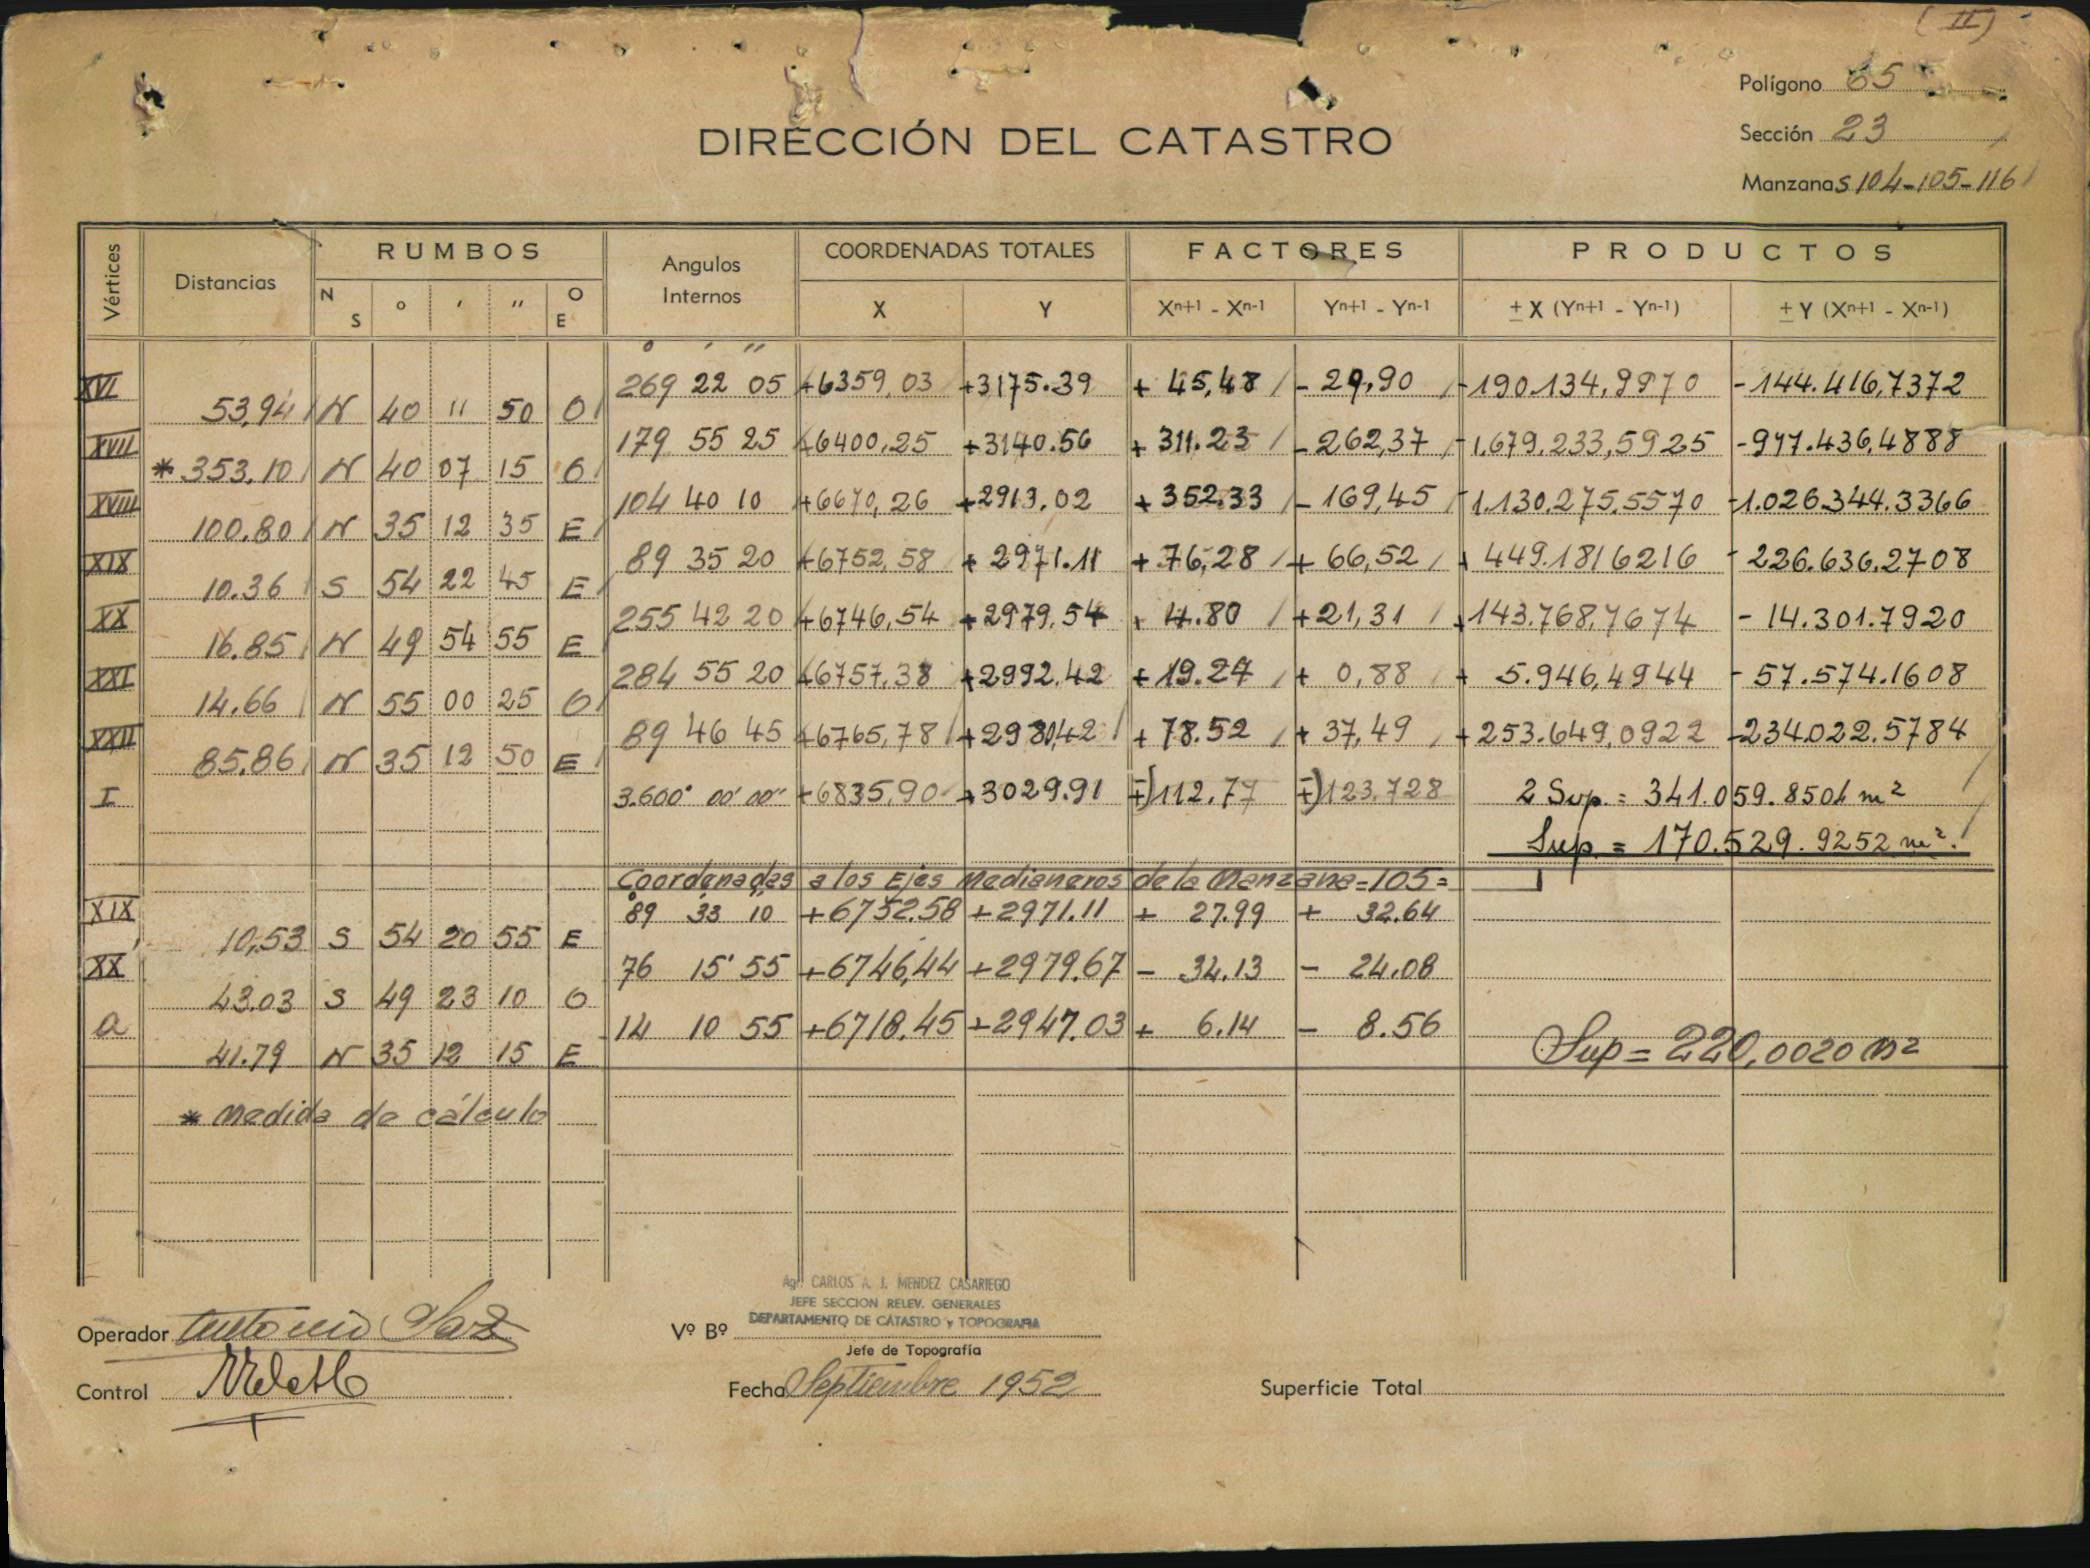 (II)
Polígono 65
Sección 23
Manzanas 104-105-116
DIRECCIÓN DEL CATASTRO
Vértices Distancias RUMBOS Angulos Internos COORDENADAS TOTALES FACTORES PRODUCTOS
N S ° ' " O E X Y Xn+1 - Xn-1 Yn+1 - Yn-1 ± X (Yn+1 - Yn-1) ± Y (Xn+1 - Xn-1)
° ' "
XVI 269 22 05 +6359,03 +3175.39 + 45,48 - 29,90 -190.134,9970 -144.416,7372
53,94 N 40 11 50 O
XVII 179 55 25 +6400,25 +3140.56 + 311.23 - 262,37 -1.679.233,5925 -977.436,4888
* 353,10 N 40 07 15 O
XVIII 104 40 10 +6670,26 +2913,02 + 352.33 - 169,45 -1.130.275,5570 -1.026.344.3366
100.80 N 35 12 35 E
XIX 89 35 20 +6752,58 + 2971.11 + 76,28 + 66,52 + 449.181,6216 - 226.636.2708
10.36 S 54 22 45 E
XX 255 42 20 +6746,54 +2979,54 + 4.80 +21,31 +143.768,7674 - 14.301.7920
16.85 N 49 54 55 E
XXI 284 55 20 +6757,38 +2992,42 + 19.24 + 0,88 + 5.946,4944 - 57.574.1608
14.66 N 55 00 25 O
XXII 89 46 45 +6765,78 +2980,42 + 78.52 + 37,49 +253.649,0922 -234.022.5784
85.86 N 35 12 50 E
I 3.600° 00' 00" +6835,90 +3029.91 ∓)112.77 ∓)123.728 2 Sup. = 341.059.8504 m²
Sup. = 170.529.9252 m².
Coordenadas a los Ejes Medianeros de la Manzana=105=
XIX 89 33 10 +6752.58 +2971.11 + 27.99 + 32.64
10,53 S 54 20 55 E
XX' 76 15' 55 +6746,44 +2979.67 - 34.13 - 24.08
43.03 S 49 23 10 O
a 14 10 55 +6718.45 +2947.03 + 6.14 - 8.56
41.79 N 35 12 15 E Sup = 220,0020 m²
* medida de cálculo
Ag. CARLOS A. J. MENDEZ CASARIEGO
JEFE SECCION RELEV. GENERALES
DEPARTAMENTO DE CATASTRO y TOPOGRAFIA
Operador Antonio Saz Vº Bº
Jefe de Topografía
Control Fecha Septiembre 1952 Superficie Total